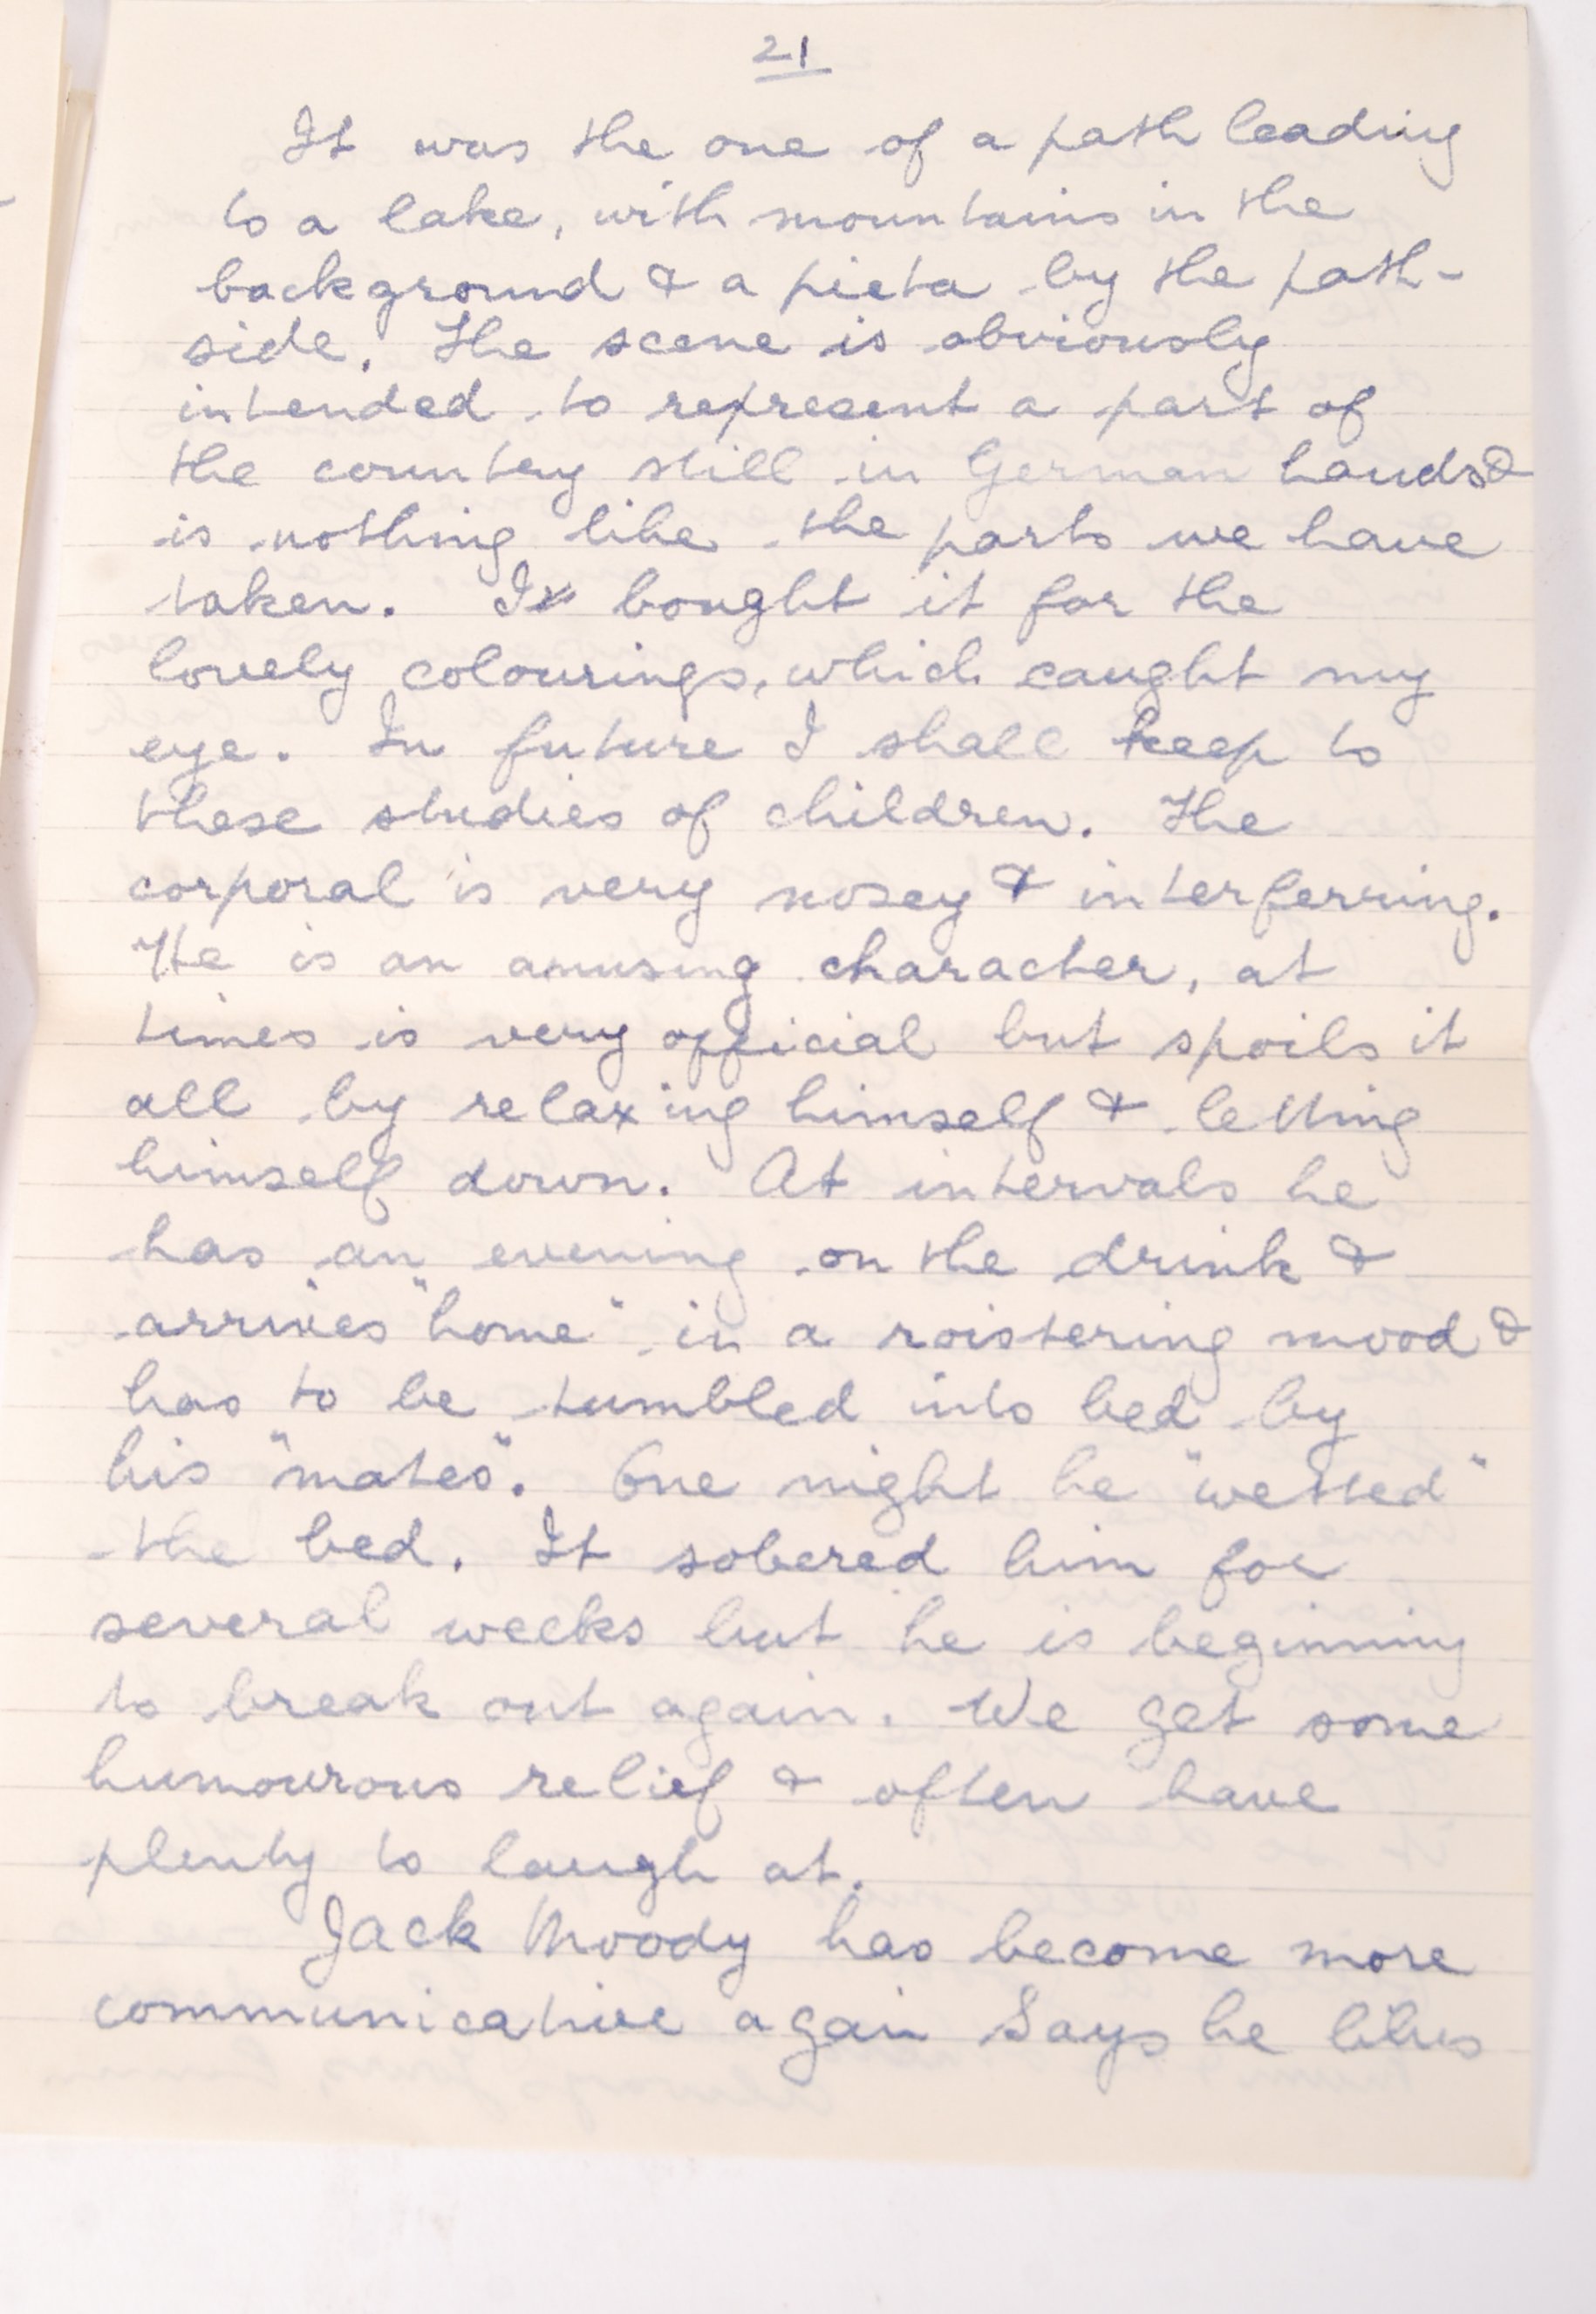 21
It was the one of a path leading
to a lake, with mountains in the
background & a pieta by the path-
side. The scene is obviously
intended to represent a part of
the country still in German hands &
is nothing like the parts we have
taken. I bought it for the
lovely colourings, which caught my
eye. In future I shall keep to
these studies of children. The
corporal is very nosey & interferring.
He is an amusing character, at
times is very official but spoils it
all by relaxing himself & letting
himself down. At intervals he
has an evening on the drink &
arrives "home" in a roistering mood &
has to be tumbled into bed by
his "mates". One night he "wetted"
the bed. It sobered him for
several weeks but he is beginning
to break out again. We get some
humourous relief & often have
plenty to laugh at.
Jack Moody has become more
communicative again Says he likes